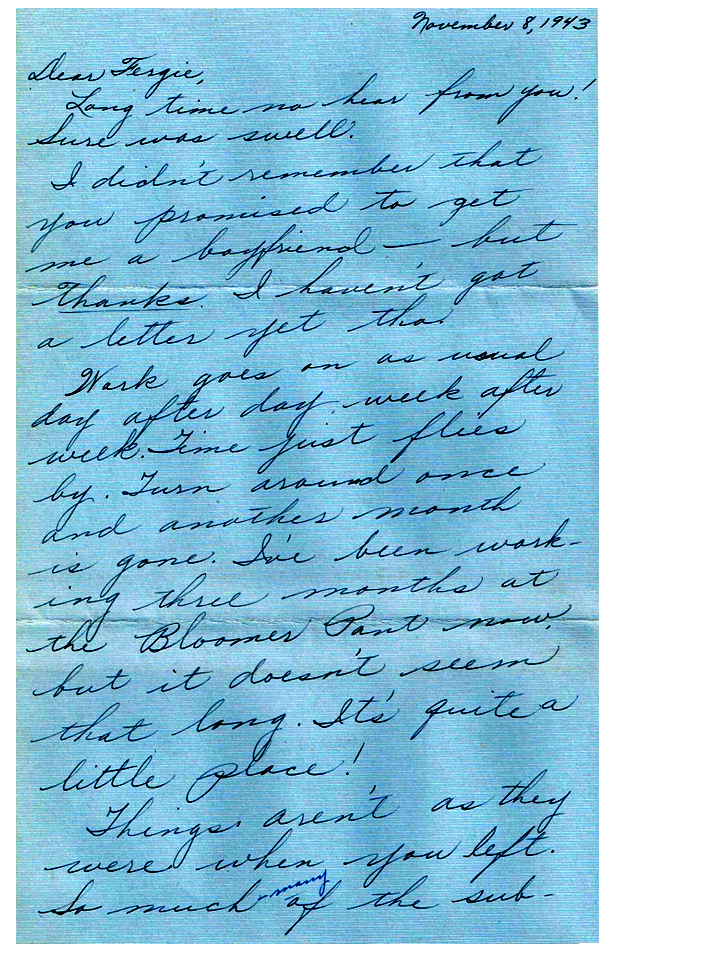 November 8, 1943
Dear Fergie,
Long time no hear from you!
Sure was swell.
I didn't remember that
you promised to get
me a boyfriend — but
thanks. I haven't got
a letter yet tho.
Work goes on as usual
day after day, week after
week. Time just flies
by. Turn around once
and another month
is gone. I've been work-
ing three months at
the Bloomer Pant now,
but it doesn't seem
that long. It's quite a
little place!
Things aren't as they
were when you left.
many
So much of the sub-